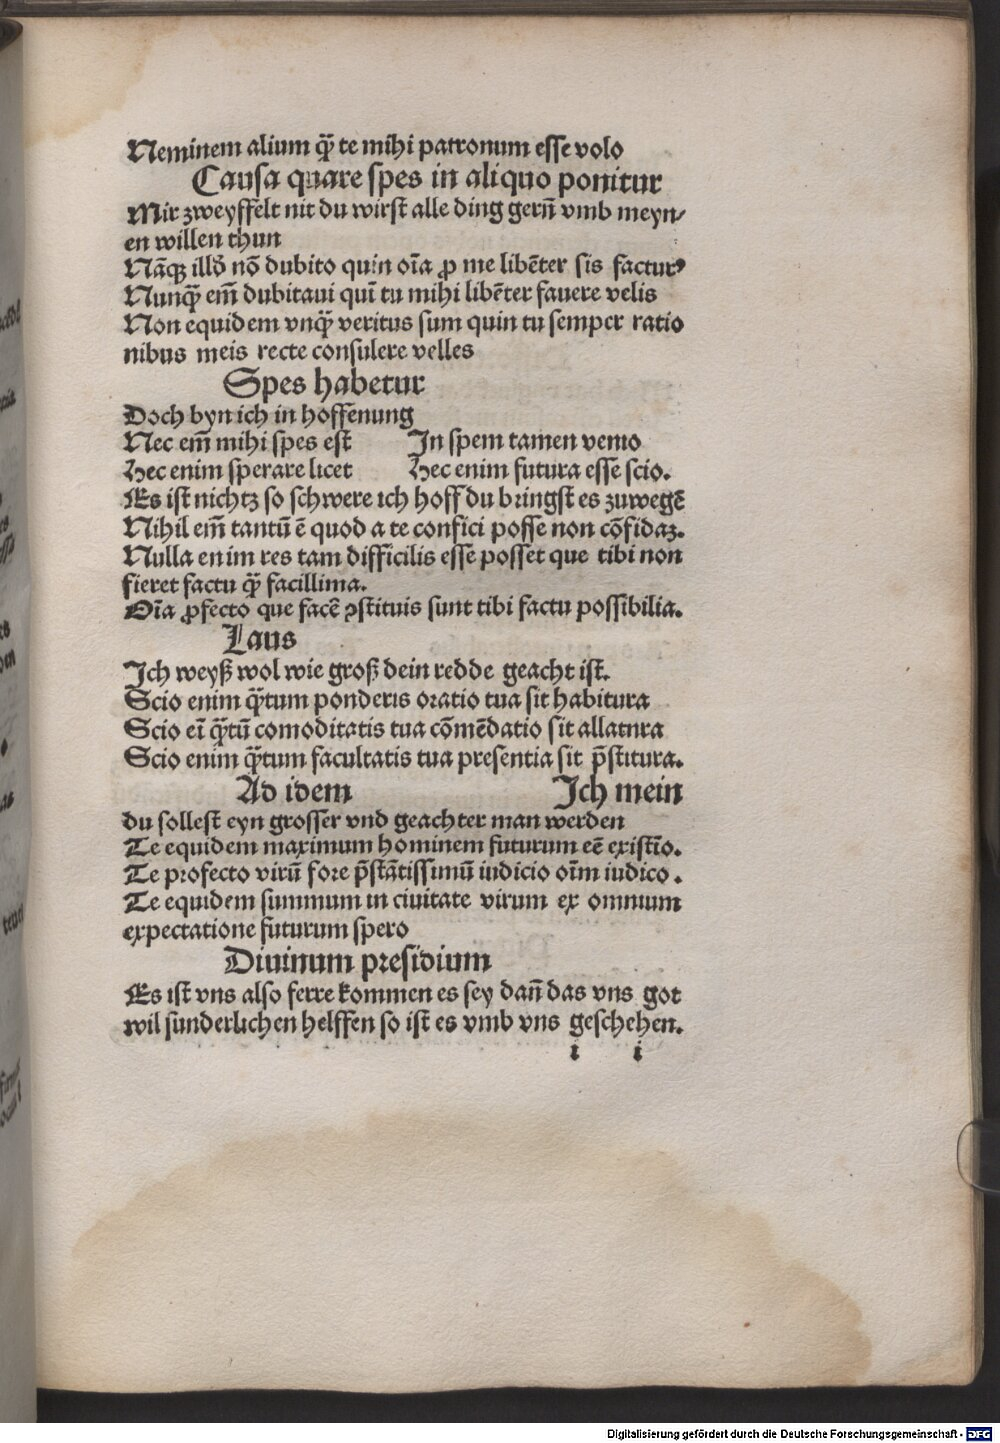 Neminem alium q̃ te mihi patronum esse volo
Causa quare spes in aliquo ponitur
Mir zweyffelt nit du wirst alle ding gerñ vmb meyn⸗
en willen thun
Nãqꝫ illḋ nõ dubito quin oĩa ꝓ me libẽter sis facturꝰ
Nunq̃ em̃ dubitaui quĩ tu mihi libẽter fauere velis
Non equidem vnq̃ veritus sum quin tu semper ratio
nibus meis recte consulere velles
Spes habetur
Doch byn ich in hoffẽnung
Nec em̃ mihi spes est In spem tamen venio
Hec enim sperare licet Hec enim futura esse scio.
Es ist nichtz so schwere ich hoff du bringst es zuwegẽ
Nihil em̃ tantũ ẽ quod a te confici posse non cõfidaꝫ.
Nulla enim res tam difficilis esse posset que tibi non
fieret factu q̃ facillima.
Oĩa ꝓfecto que facẽ ꝯstituis sunt tibi factu possibilia.
Laus
Ich weyß wol wie groß dein redde geacht ist.
Scio enim q̃tum ponderis oratio tua sit habitura
Scio eĩ q̃tũ comoditatis tua cõmẽdatio sit allatura
Scio enim q̃tum facultatis tua presentia sit p̃stitura.
Ad idem Ich mein
du sollest eyn grosser vnd geachter man werden
Te equidem maximum hominem futurum eẽ existĩo.
Te profecto virũ fore p̃stãtissimũ iudicio oĩm iudico.
Te equidem summum in ciuitate virum ex omnium
expectatione futurum spero
Diuinum presidium
Es ist vns also ferre kommen es sey dañ das vns got
wil sunderlichen helffen so ist es vmb vns geschehen.
i i
Digitalisierung gefördert durch die Deutsche Forschungsgemeinschaft - DFG